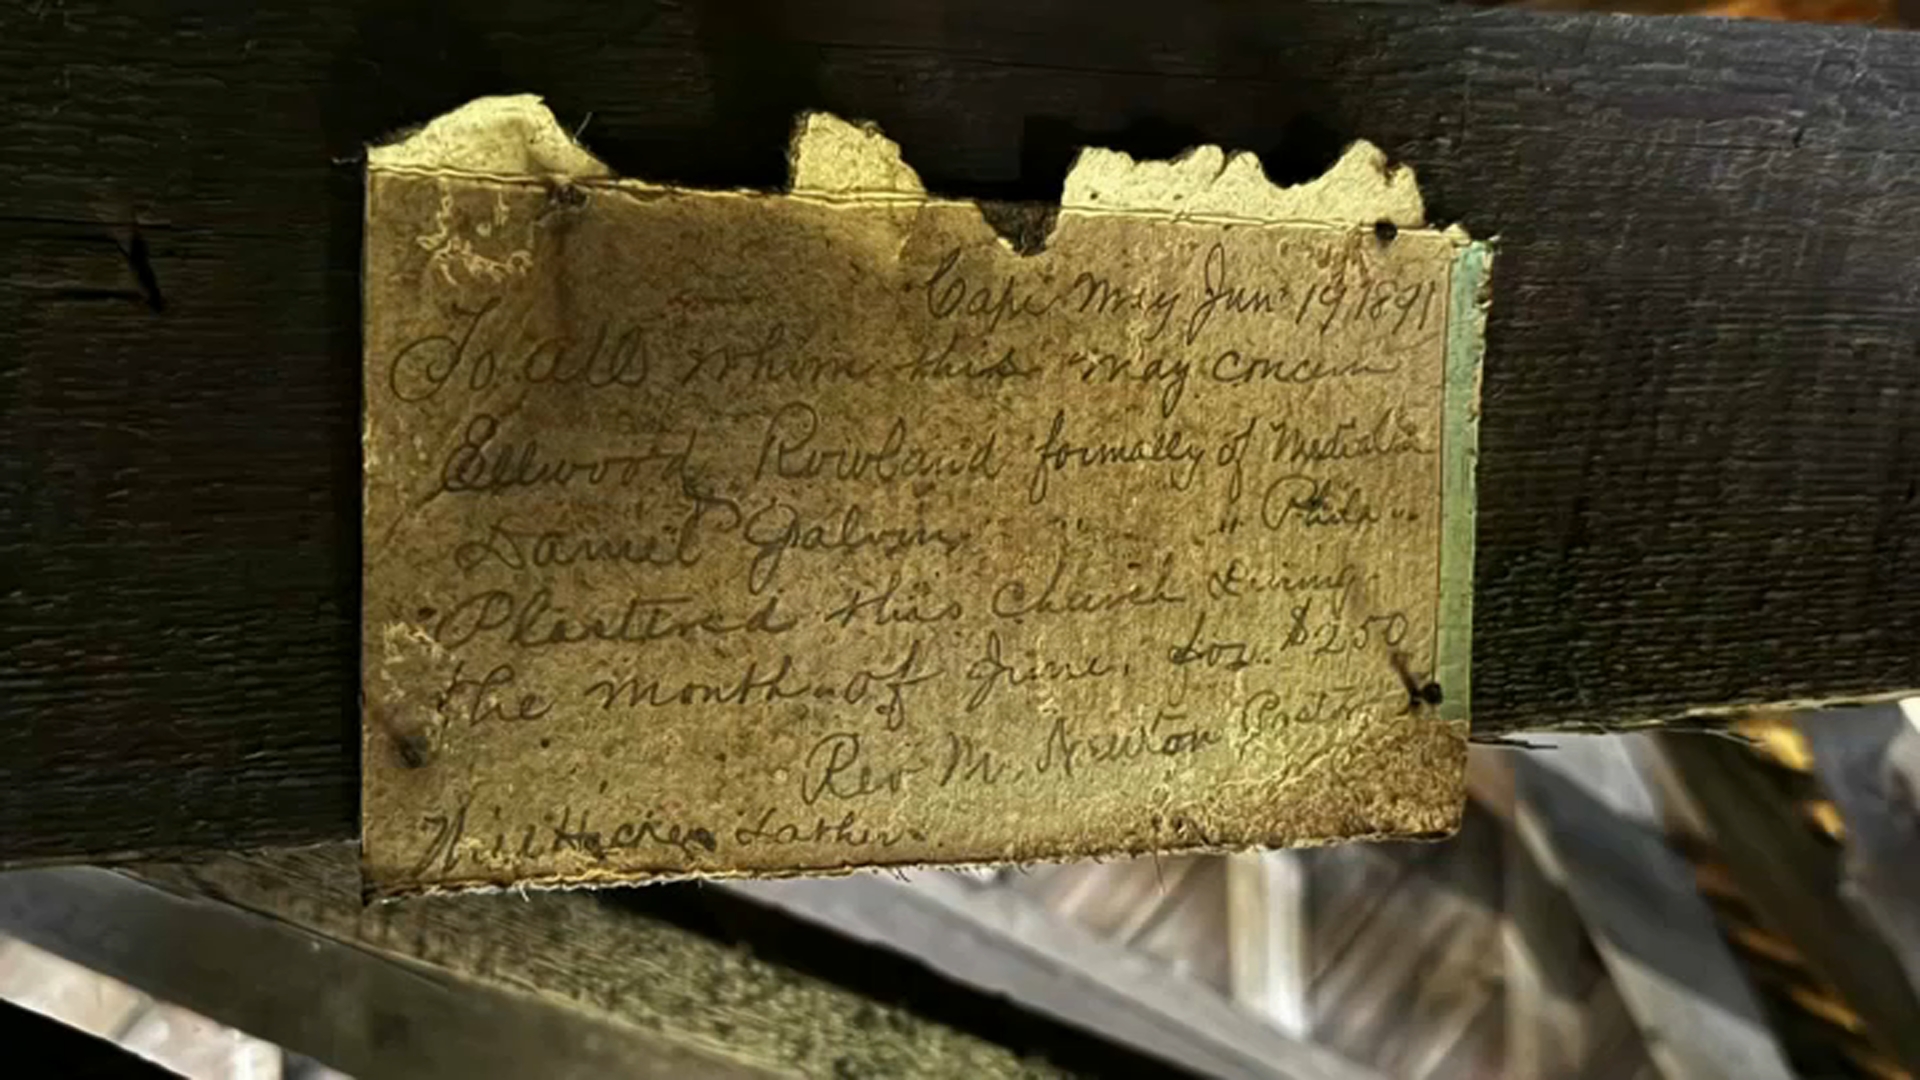 Cape May Jun 19 1891
To all whom this may concern
Ellwood Rowland formally of
Daniel Galvin " " Phila "
Plastered this church During
the month of June. for. $250
Rev M. Newton Pastor
Will Lather.